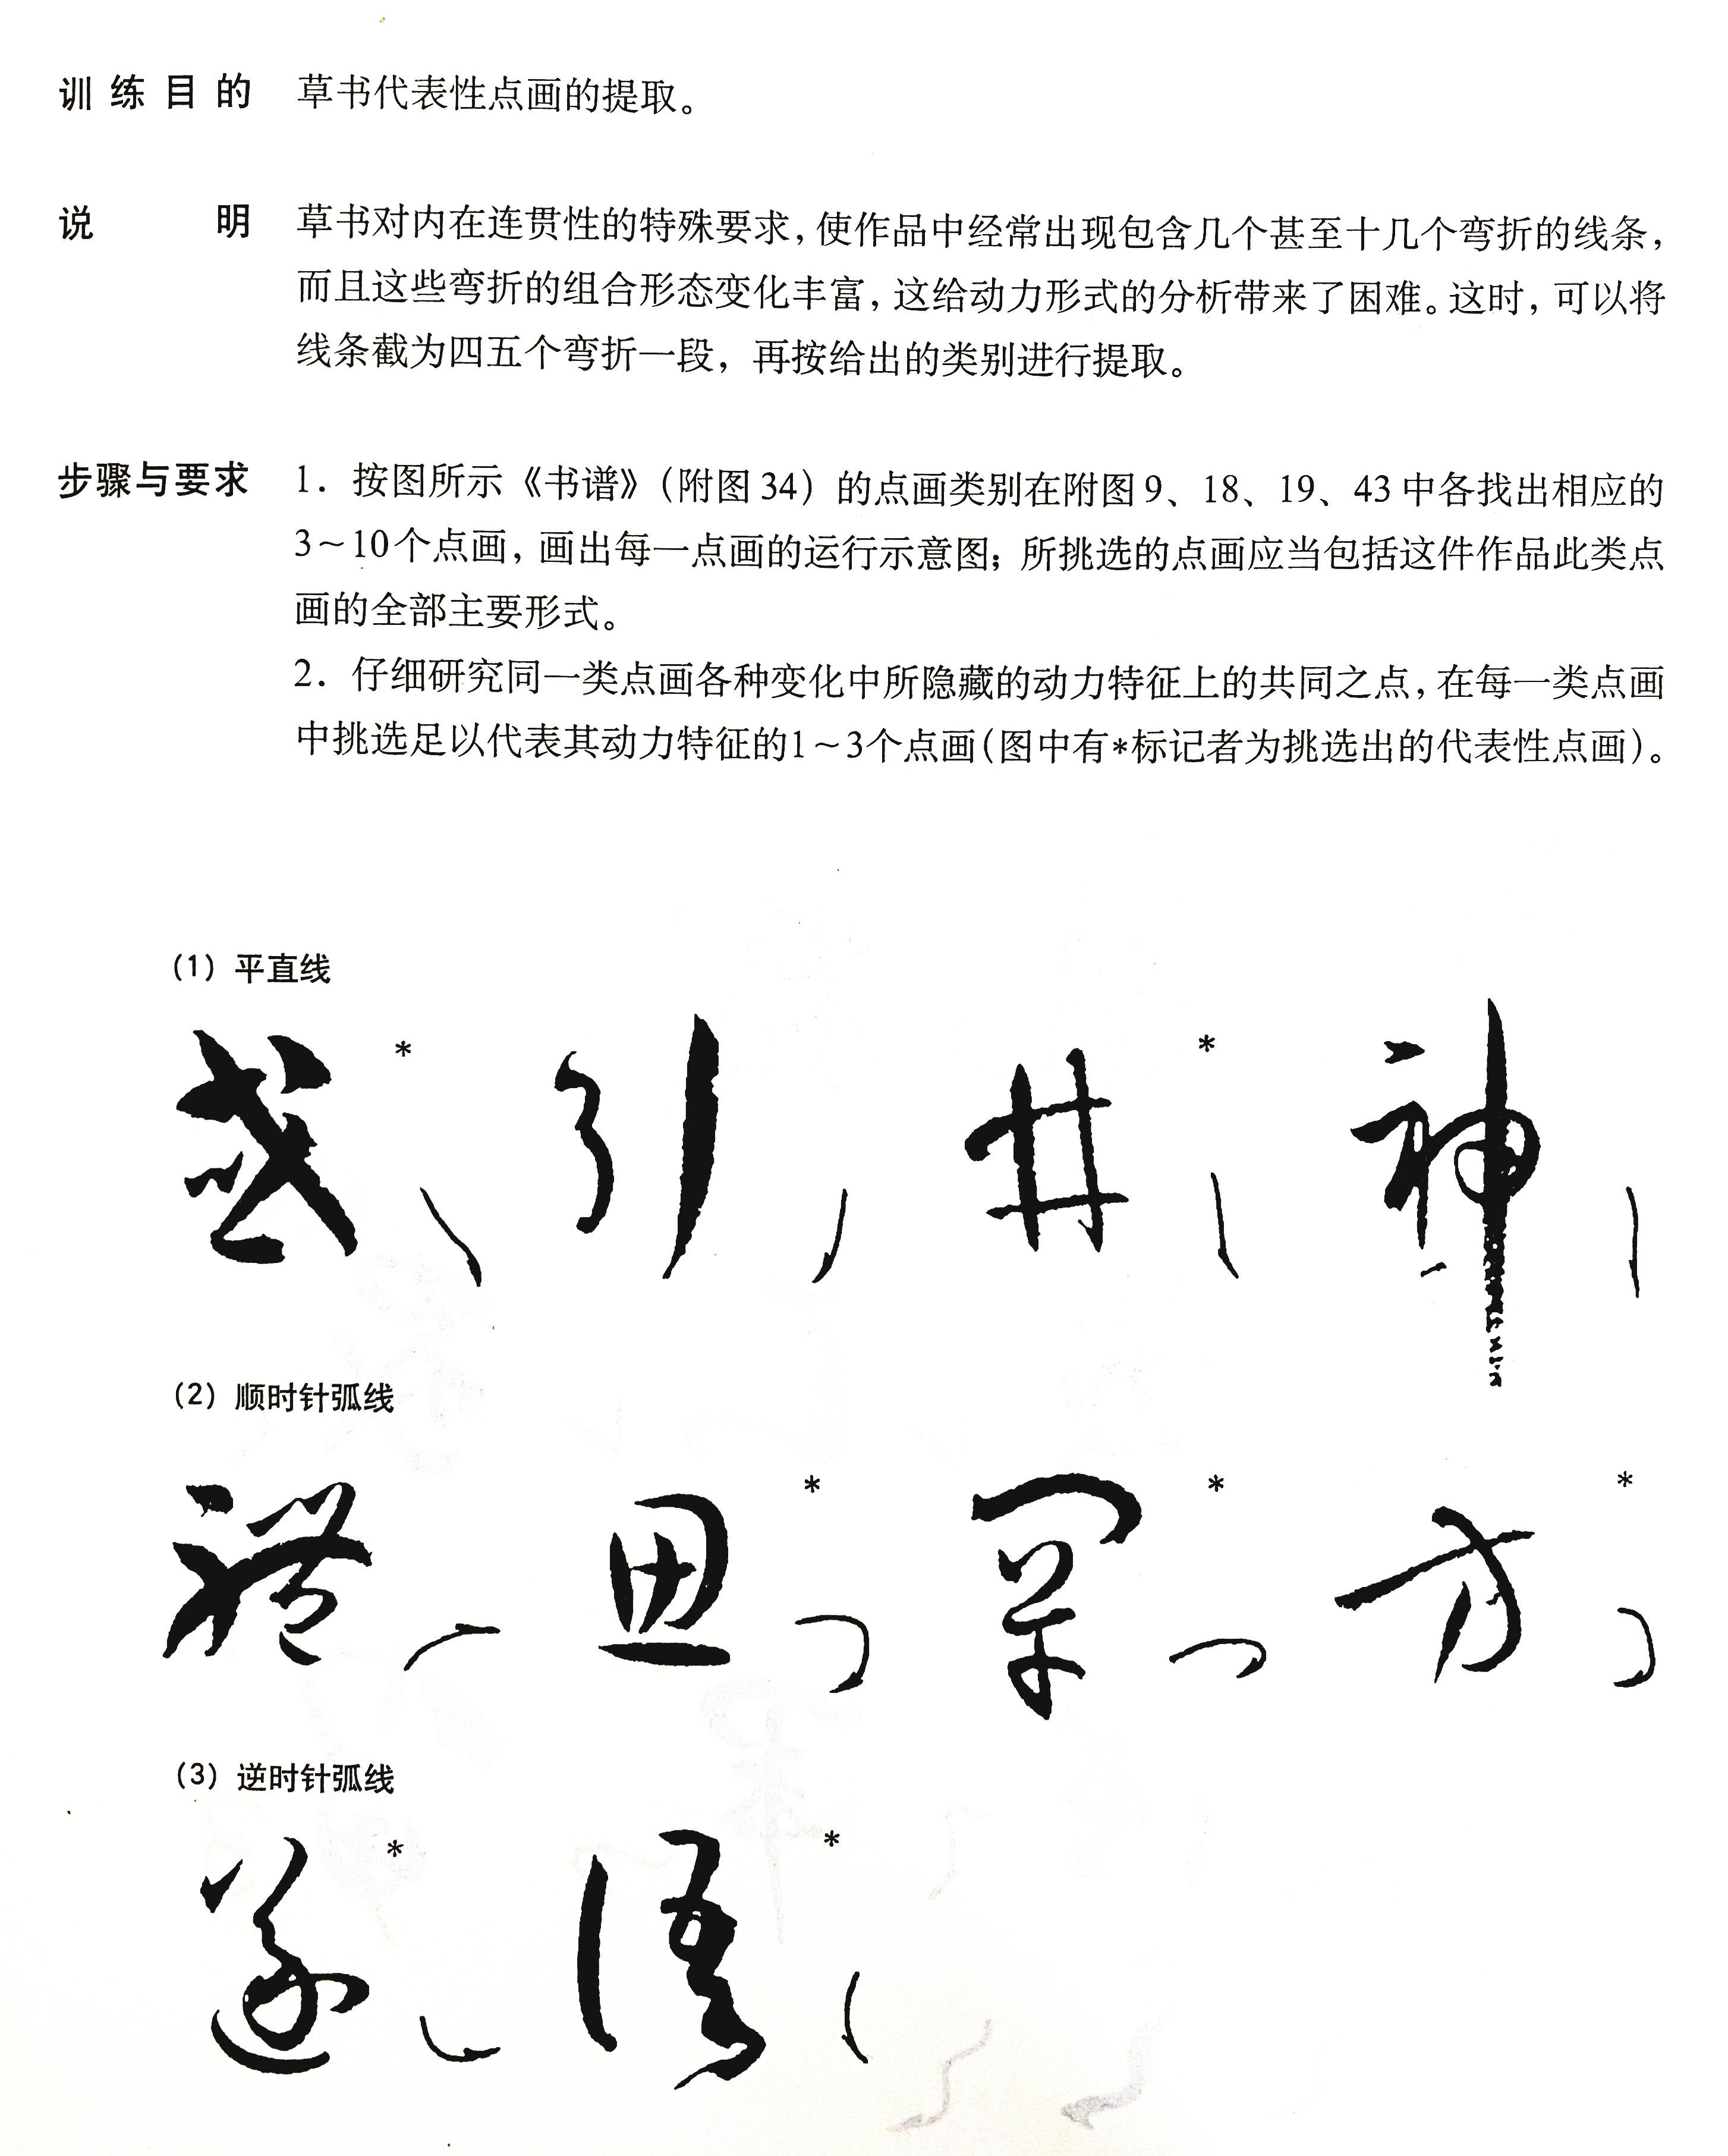 训练目的 草书代表性点画的提取。
说明 草书对内在连贯性的特殊要求，使作品中经常出现包含几个甚至十几个弯折的线条，
而且这些弯折的组合形态变化丰富，这给动力形式的分析带来了困难。这时，可以将
线条截为四五个弯折一段，再按给出的类别进行提取。
步骤与要求 1. 按图所示《书谱》（附图34）的点画类别在附图9、18、19、43中各找出相应的
3～10个点画，画出每一点画的运行示意图；所挑选的点画应当包括这件作品此类点
画的全部主要形式。
2. 仔细研究同一类点画各种变化中所隐藏的动力特征上的共同之点，在每一类点画
中挑选足以代表其动力特征的1～3个点画(图中有*标记者为挑选出的代表性点画)。
(1) 平直线
* *
引 井 神
(2) 顺时针弧线
* * *
方
(3) 逆时针弧线
* *
遂